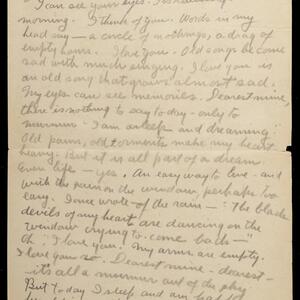 I can see your eyes. It's raining this
morning. I think of you. Words in my
head say — a circle of nothings, a drag of
empty hours. I love you. Old songs become
sad with much singing. I love you is
an old song that grows almost sad.
My eyes can see memories. Dearest mine,
there is nothing to say to-day - only to
murmur. I am asleep and dreaming.
Old pains, old torments make my heart
heavy. But it is all part of a dream.
Even life - yes. An easy way to live - and
with the rain on the window, perhaps too
easy. I once wrote of the rain — "The black
devils of my heart are dancing on the
window trying to come back —"
Oh, I love you. My arms are empty.
I love you so. Dearest mine - dearest -
it's all a murmur out of the play
But to-day I sleep and am